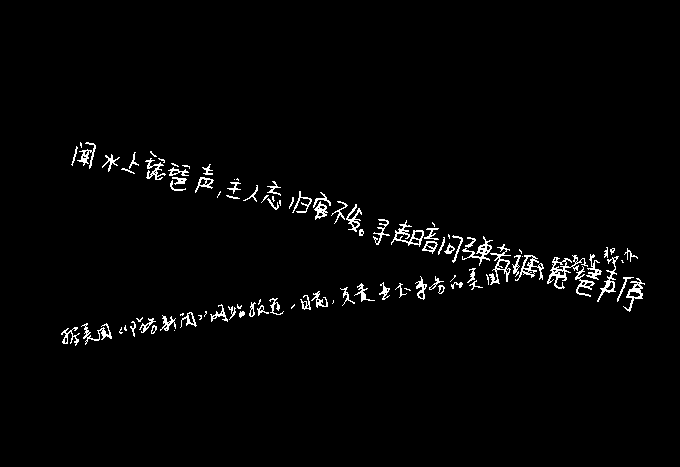 闻水上琵琶声,主人忘归客不发。寻声暗问弹者谁琵琶声停
据美国《防务新闻》网站报道,目前,负责亚太事务的美国